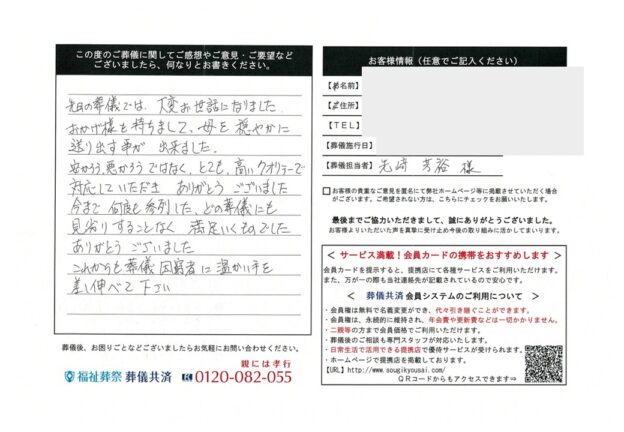 この度のご葬儀に関してご感想やご意見・ご要望など
ございましたら、何なりとお書きください。
先日の葬儀では、大変お世話になりました。
おかげ様を持ちまして、母を穏やかに
送り出す事が出来ました。
安かろう、悪かろうではなく、とても、高いクオリテーで
対応していただき ありがとう ございました
今まで 何度も参列した、どの葬儀にも
見劣りすることなく 満足いくものでした
ありがとう ございました
これからも葬儀困窮者に温かい手を
差し伸べて下さい
葬儀後、お困りごとなどございましたらお気軽にお問い合わせください。
親には孝行
福祉葬祭 葬儀共済 0120-082-055
お客様情報（任意でご記入ください）
【お名前】
【ご住所】
【TEL】
【葬儀施行日】
【葬儀担当者】 先崎 芳裕 様
お客様の貴重なご意見を匿名にて弊社ホームページ等に掲載させていただく場合
がございます。ご希望されない方は、こちらにチェックをお願いいたします。
最後までご協力いただきまして、誠にありがとうございました。
お客様よりいただいた声を真摯に受け止め今後の取り組みに活かしてまいります。
＜ サービス満載！会員カードの携帯をおすすめします ＞
会員カードを提示すると、提携店にて各種サービスをご利用いただけます。
また、万が一の際も当社連絡先が記載されているので安心です。
＜ 葬儀共済 会員システムのご利用について ＞
・会員権は無料で名義変更ができ、代々引き継ぐことができます。
・会員権は、永続的に維持され、年会費や更新費などは一切かかりません。
・二親等の方まで会員価格でご利用いただけます。
・葬儀後のご相談も専門スタッフが対応いたします。
・日常生活で活用できる提携店で優待サービスが受けられます。
・ホームページで提携店を掲載しております。
【URL】http://www.sougikyousai.com/
QRコードからもアクセスできます⇒